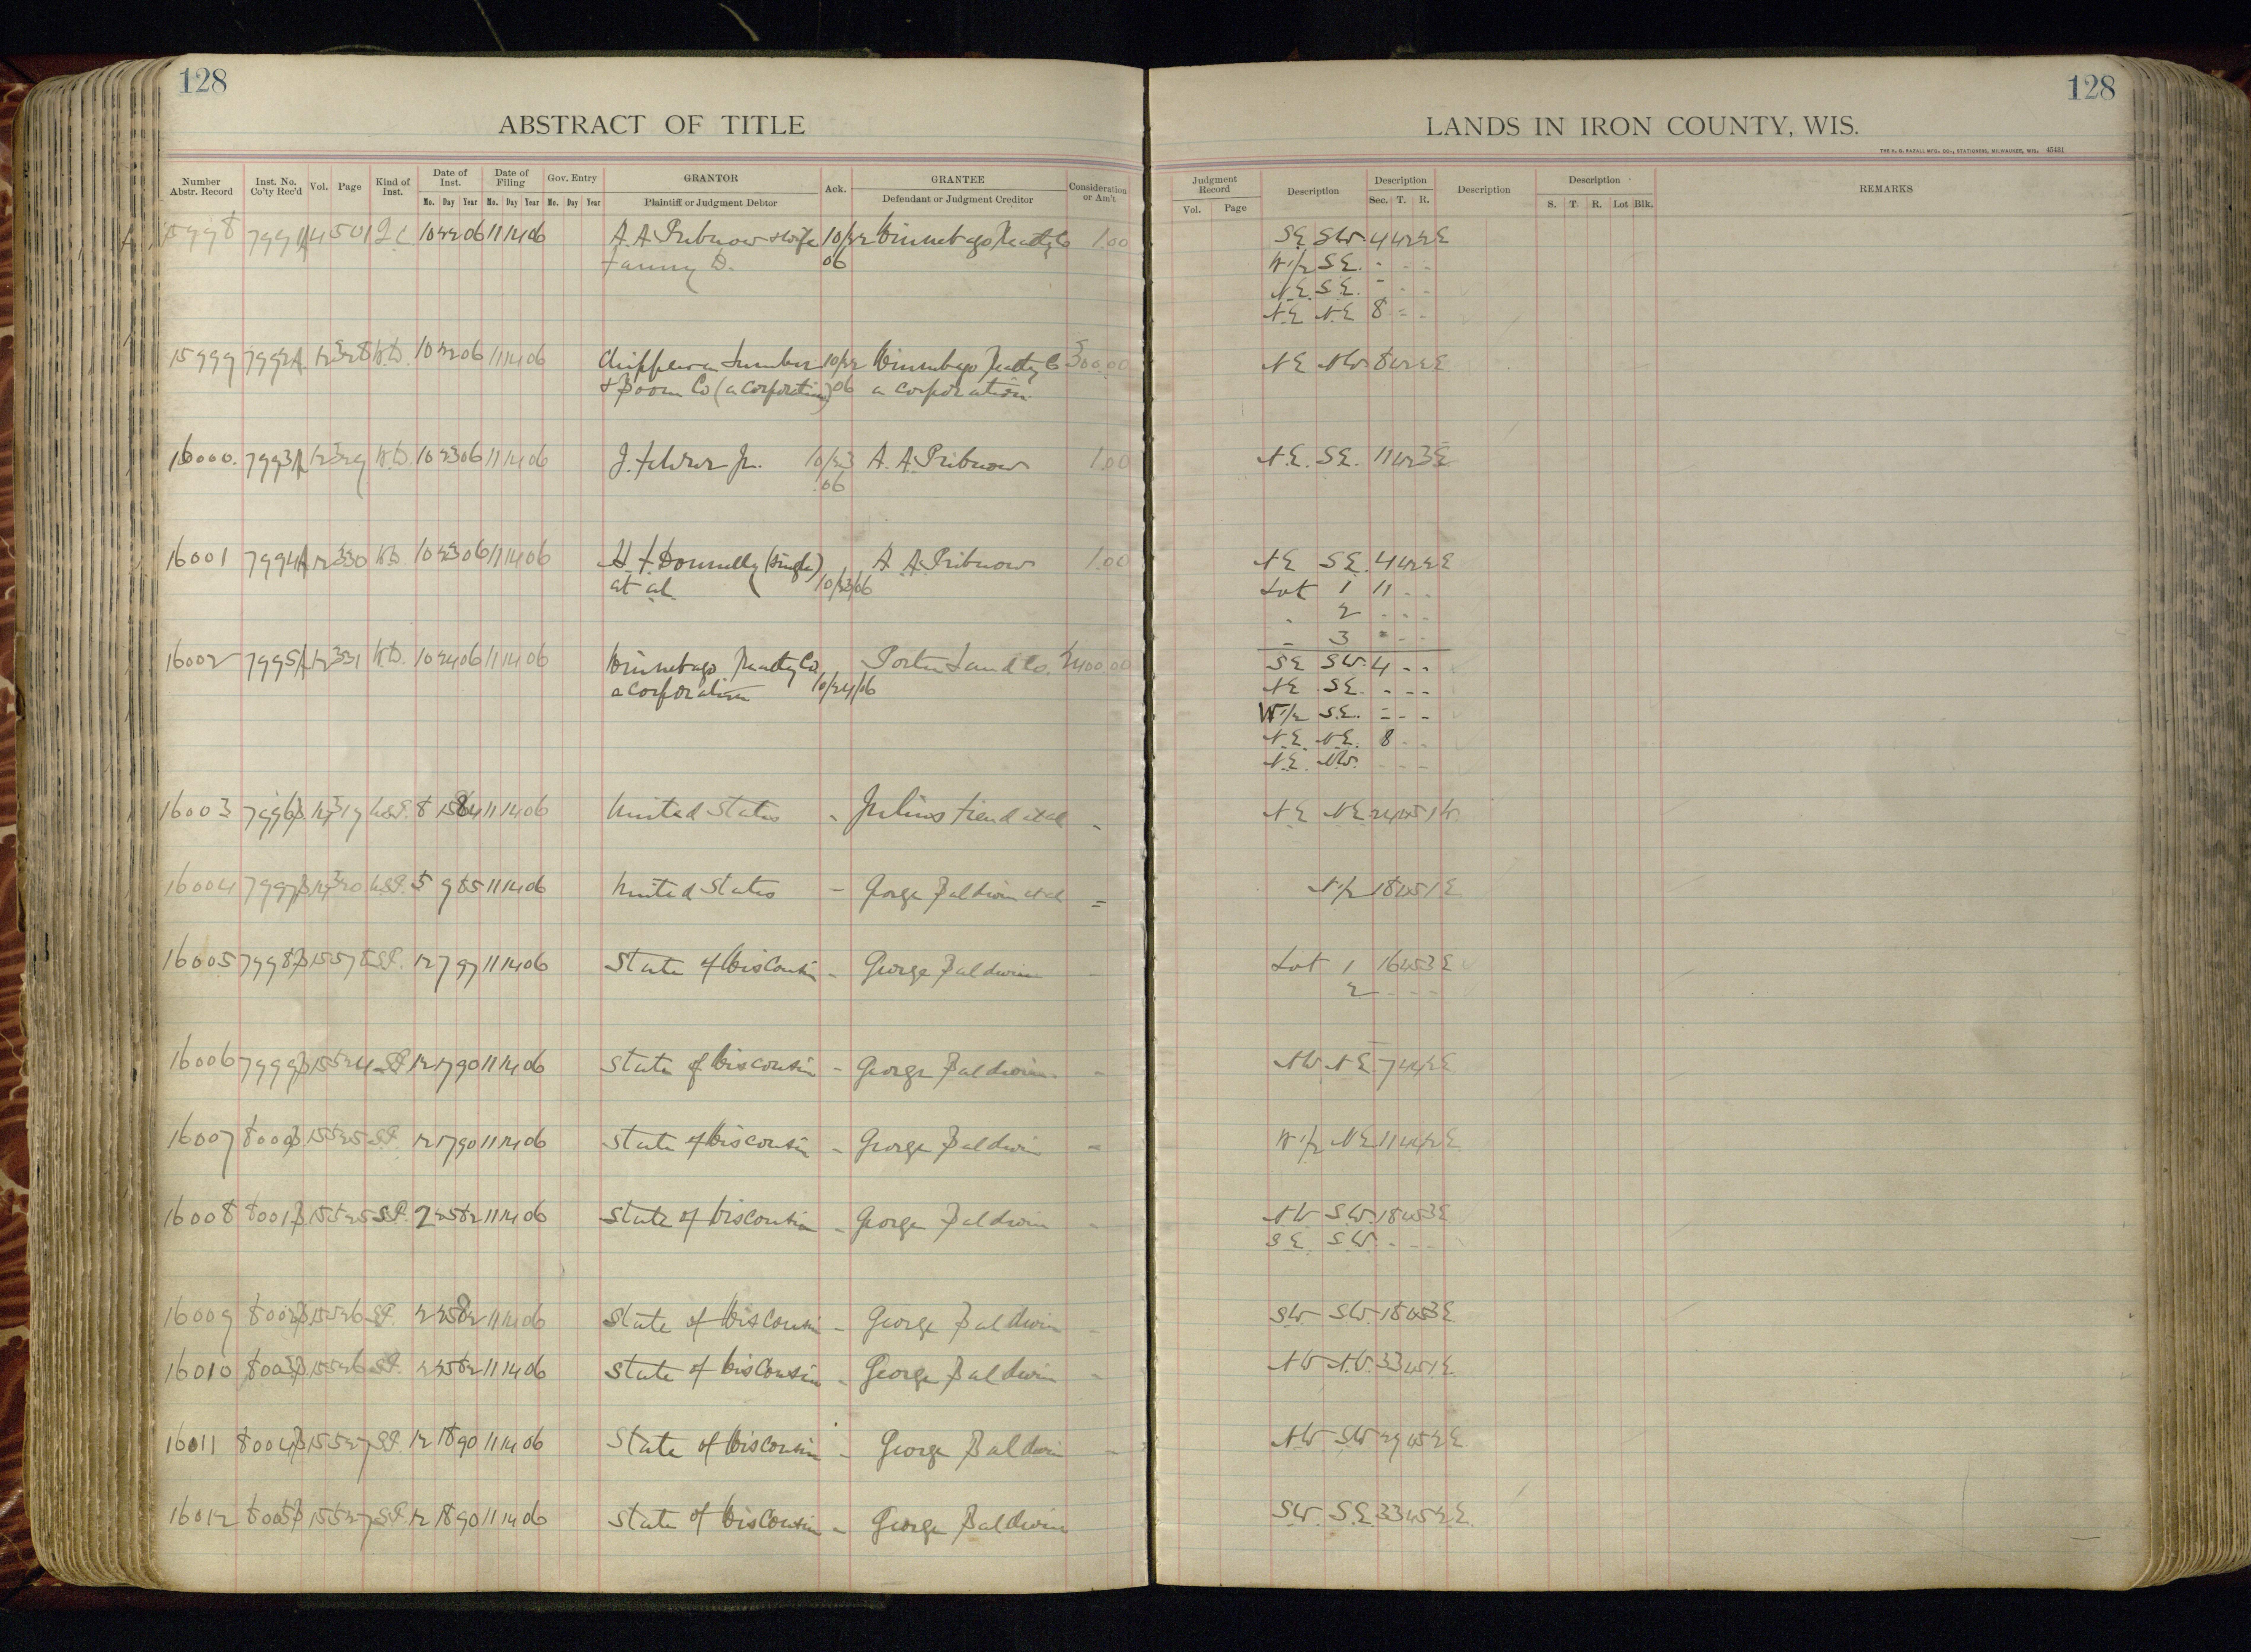 128
128
ABSTRACT OF TITLE
LANDS IN IRON COUNTY, WIS.
THE H. G. RAZALL MFG. CO., STATIONERS, MILWAUKEE, WIS. 45431
Number Abstr. Record
Inst. No. Co'ty Rec'd
Vol.
Page
Kind of Inst.
Date of Inst.
Mo. Day Year
Date of Filing
Mo. Day Year
Gov. Entry
Mo. Day Year
GRANTOR
Plaintiff or Judgment Debtor
Ack.
GRANTEE
Defendant or Judgment Creditor
Consideration or Am't
Judgment Record
Vol. Page
Description
Description
Sec. T. R.
Description
Description
S. T. R. Lot Blk.
REMARKS
15998 7991A 14 501 Q.C. 10 22 06 11 14 06 A. A. Pribnow & wife 10/22 Winnebago Realty Co 1.00 SE SW 4 42 2E
Fanny D. 06 W1/2 SE. - - -
NE. SE. - - -
NE NE 8 - -
15999 7992A 12 328 W.D. 10 22 06 11 14 06 Chippewa Lumber 10/22 Winnebago Realty Co 300.00 NE NW 8 42 2E
& Boom Co (a corporation) 06 a corporation
16000 7993A 12 329 W.D. 10 23 06 11 14 06 10/23 A. A. Pribnow 1.00 NE. SE. 11 42 3E
06
16001 7994A 12 330 W.D. 10 23 06 11 14 06 H. F. Donnelly (single) A. A. Pribnow 1.00 NE SE. 4 42 2E
et al 10/23/06 Lot 1 11 - -
" 2 - - -
" 3 " - -
16002 7995A 12 331 W.D. 10 24 06 11 14 06 Winnebago Realty Co, Porter Land Co. 2400.00 SE SW. 4 - -
a corporation 10/24/06 NE SE. - - -
W1/2 S.E. - - -
N.E. NE. 8 - -
NE. NW. - - -
16003 7996B 17 319 U.S.P. 8 15 84 11 14 06 United States - Julius et al - NE NE 24 45 1W.
16004 7997B 17 320 U.S.P. 5 9 85 11 14 06 United States - George Baldwin et al = N1/2 18 45 1E
16005 7998B 15 578 S.P. 12 7 97 11 14 06 State of Wisconsin - George Baldwin - Lot 1 16 45 3E
2 - - -
16006 7999B 15 524 S.P. 12 17 90 11 14 06 State of Wisconsin - George Baldwin - NW NE 7 44 2E
16007 8000B 15 525 S.P. 12 17 90 11 14 06 State of Wisconsin - George Baldwin = W1/2 NE 11 44 2E
16008 8001B 15 525 S.P. 2 25 82 11 14 06 State of Wisconsin - George Baldwin - NW SW. 18 45 3E
SE SW. - - -
16009 8002B 15 526 S.P. 2 25 82 11 14 06 State of Wisconsin - George Baldwin - SW SW. 18 45 3E
16010 8003B 15 526 S.P. 2 25 82 11 14 06 State of Wisconsin - George Baldwin - NW N.W. 33 45 1E
16011 8004B 15 527 S.P. 12 18 90 11 14 06 State of Wisconsin - George Baldwin - NW SW 29 45 2E
16012 8005B 15 527 S.P. 12 18 90 11 14 06 State of Wisconsin - George Baldwin SW. S.E. 33 45 2E.